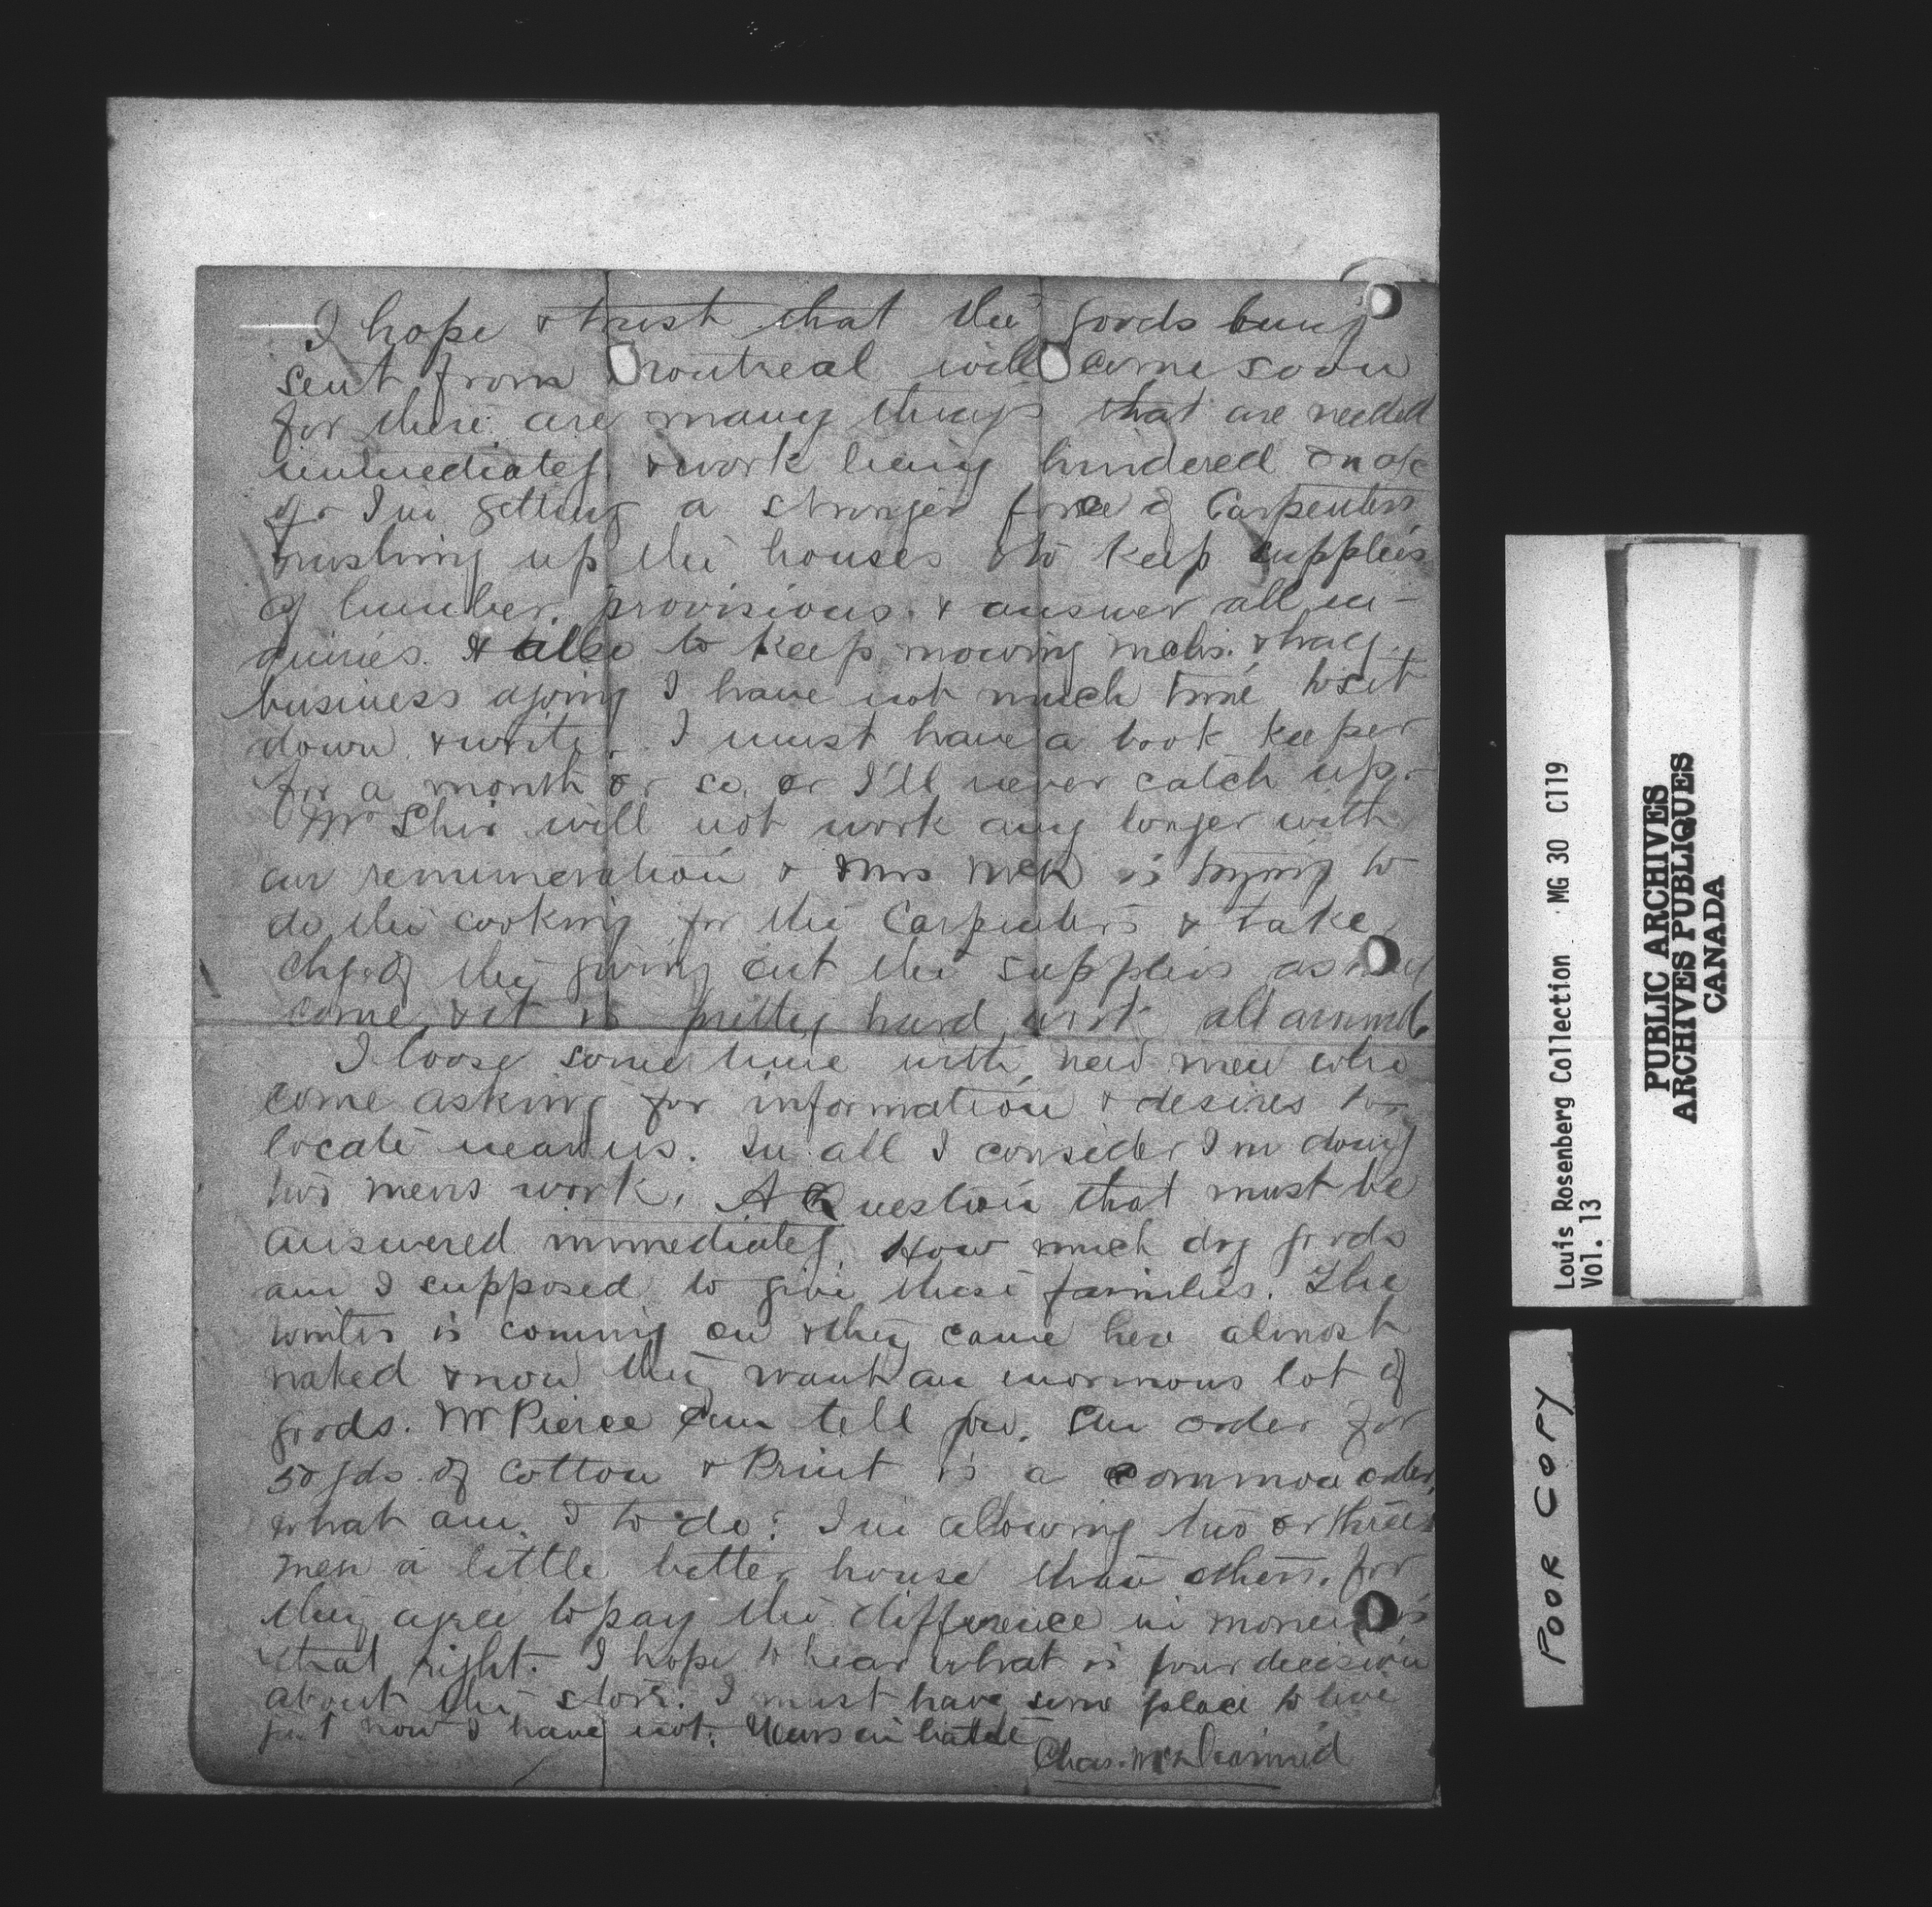 I hope & trust that the goods being
sent from Montreal will come soon
for there are many things that are needed
immediately & work being hindered on a/c
of. I'm getting a stronger force of Carpenters
rushing up the houses & to keep supplies
of lumber, provisions. & answer all in-
quiries. & also to keep mowing mchs. & hay
business agoing I have not much time to sit
down & write. I must have a book keeper
for a month or so. or I'll never catch up.
Mr will not work any longer with
our remuneration & Mrs McD is trying to
do the cooking for the Carpenters & take
chge of the giving out the supplies as they
come, & it is pretty hard work all around.
I loose some time with new men who
come asking for information & desires to
locate near us. In all I consider I'm doing
two mens work. A Question that must be
answered immediately. How much dry goods
am I supposed to give these families. The
winter is coming on & they came here almost
naked & now they want an enormous lot of
goods. Mr Pierce can tell you. An order for
50 yds. of Cotton & Print is a common order,
what am I to do? I'm allowing two or three
men a little better house than others. for
they agree to pay the difference in money is
that right. I hope to hear what is your decision
about the store. I must have some place to live
just now I have not. Yours in haste
Chas. McDiarmid
Louis Rosenberg Collection MG 30 C119
Vol. 13
PUBLIC ARCHIVES
ARCHIVES PUBLIQUES
CANADA
POOR COPY